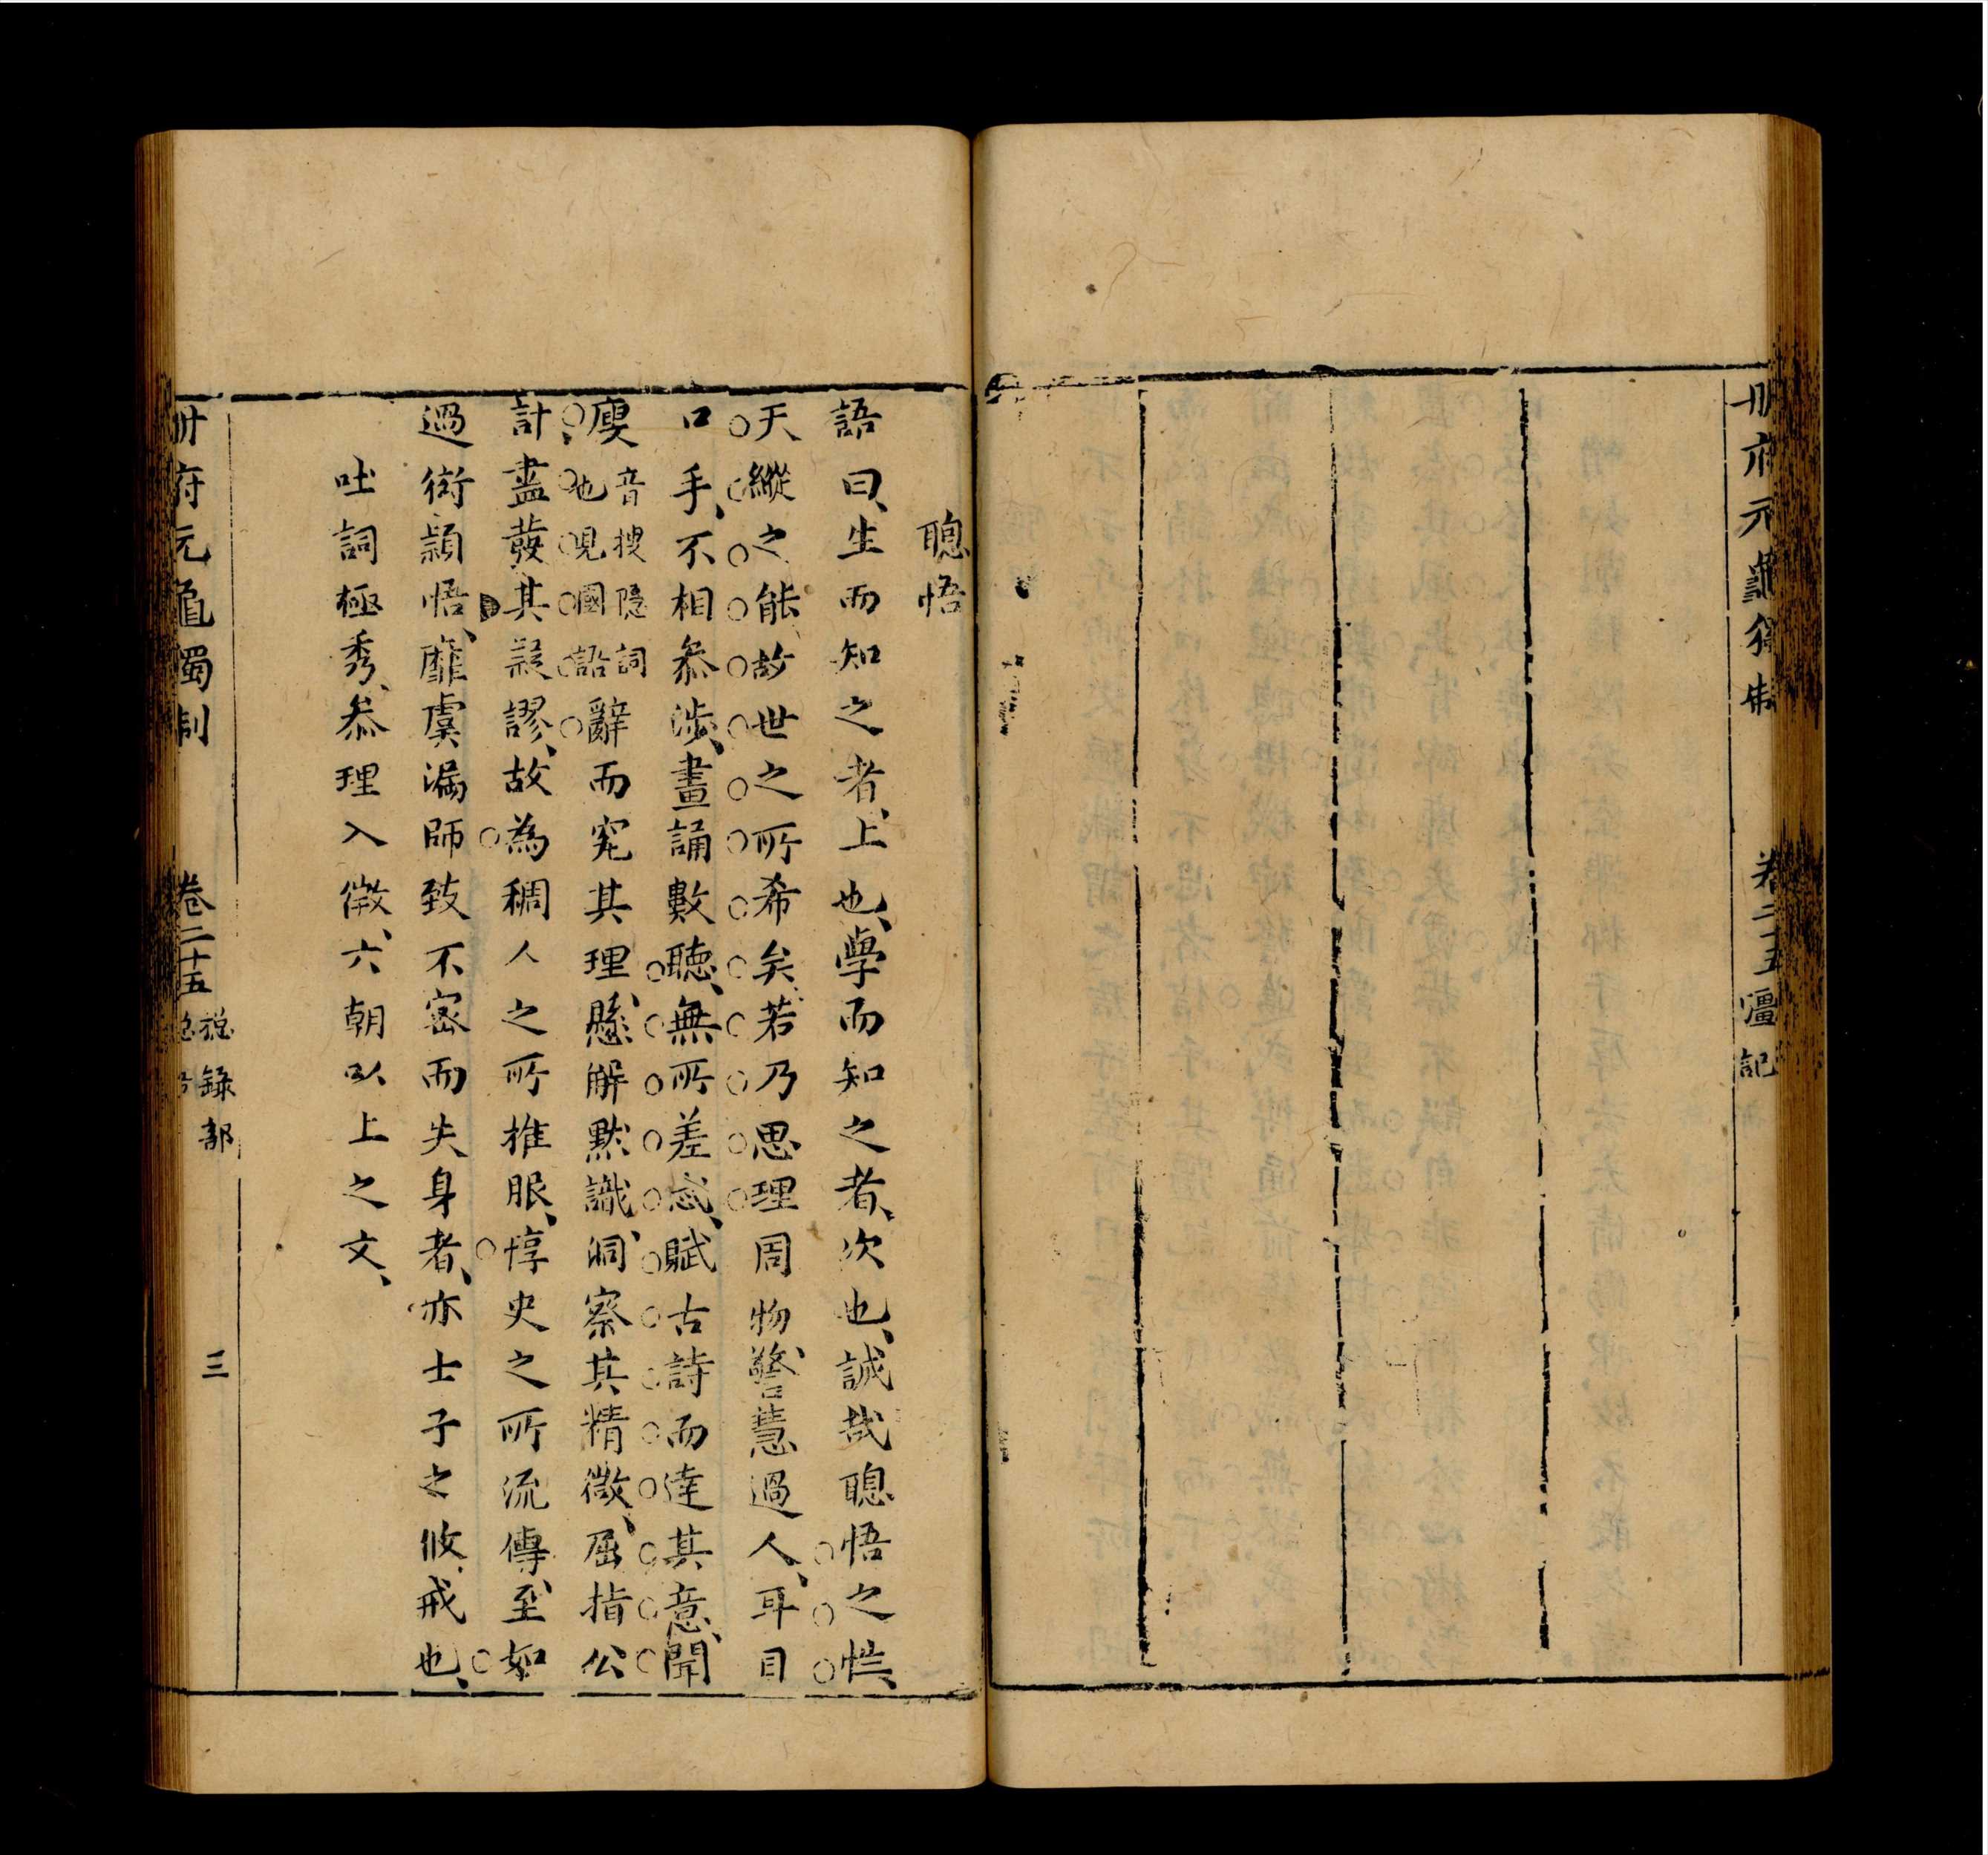 卷二十五 彊記
聰悟
語曰生而知之者、上也、學而知之者、次也、誠哉聰悟之性、
天縱之能故世之所希矣若乃思理周物、警慧過人、耳目
口手、不相叅涉、畫誦數聽、無所差忒、賦古詩而達其意、聞
廋音搜隐詞也見國語辭而究其理、懸解默識、洞察其精微、屈指公
計、盡發其疑謬、故為稠人之所推服、惇史之所流傳、至如
過銜穎悟、靡虞漏師致不密而失身者、亦士子之攸戒也、
吐詞極秀、叅理入微、六朝以上之文、
冊府元龜獨制 卷二十五 總錄部 三